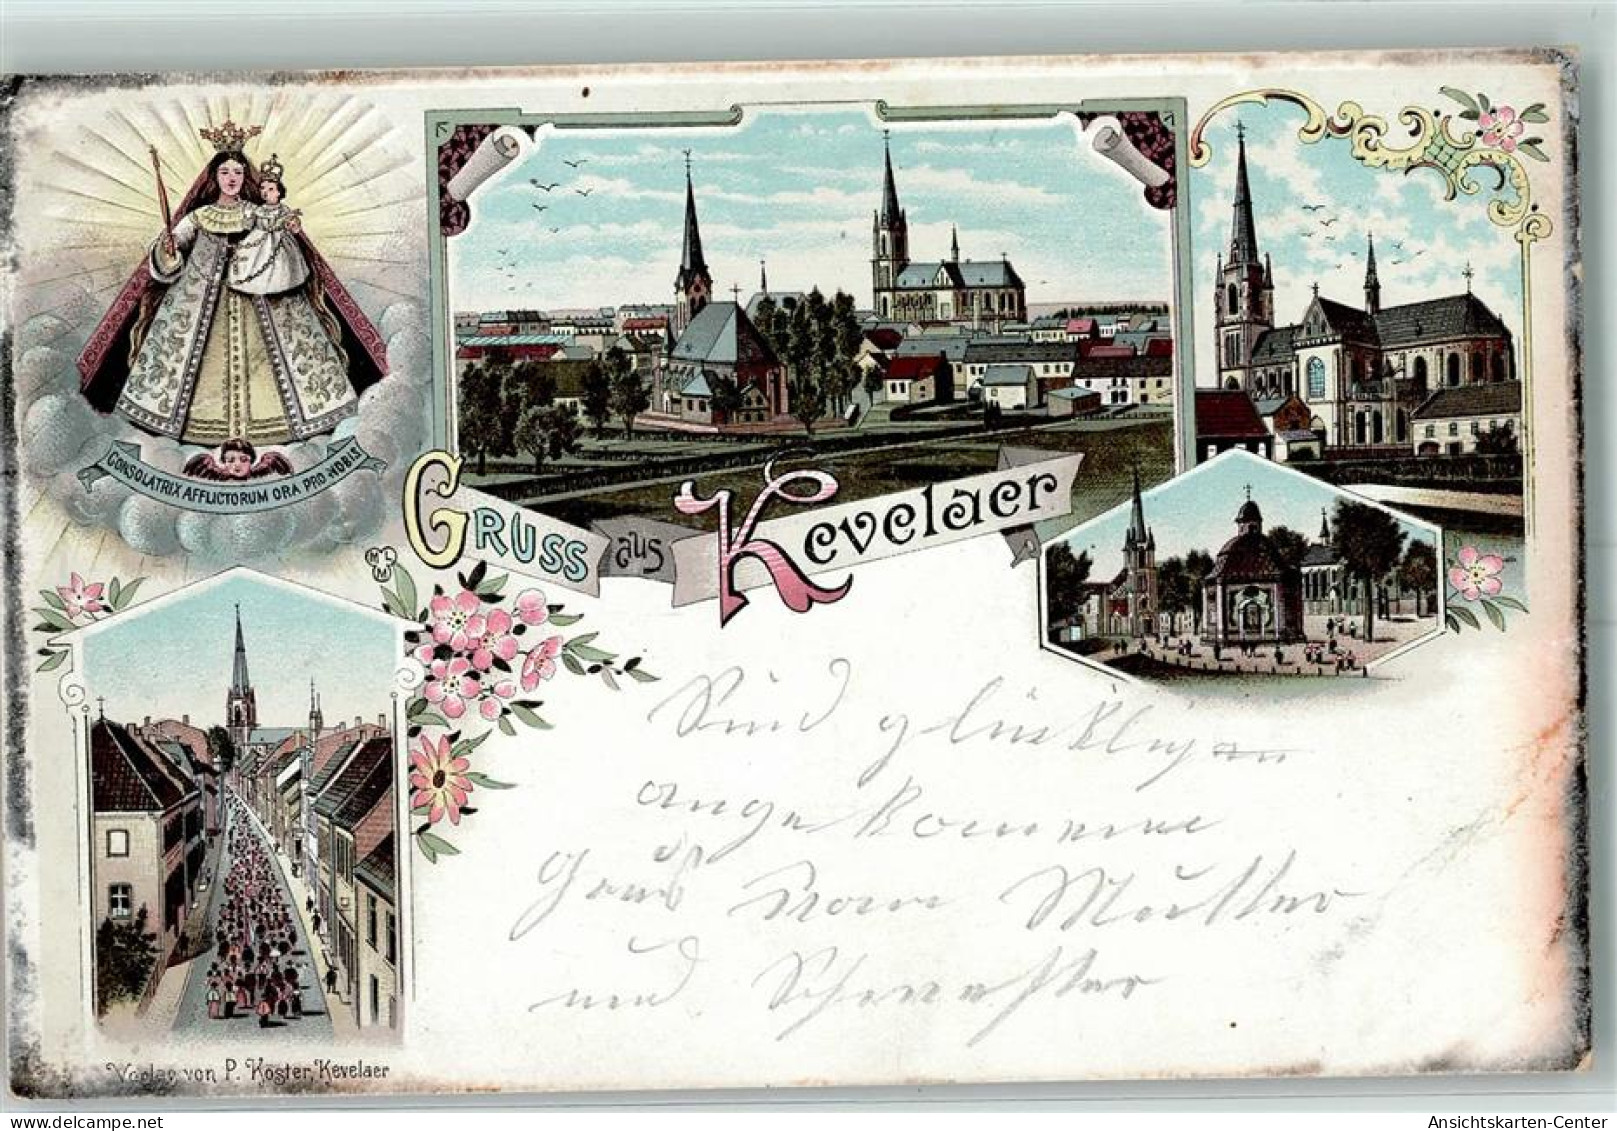 CONSOLATRIX AFFLICTORUM ORA PRO NOBIS
GRUSS aus Kevelaer
M L
M
Sind glücklich
angekommen
Gruß von Mutter
und Schwester
Verlag von P. Köster, Kevelaer
Ansichtskarten-Center